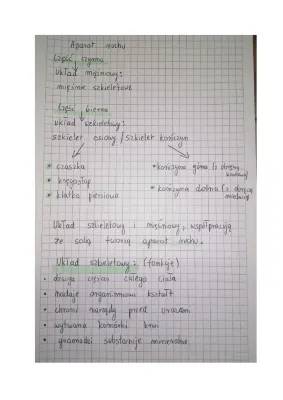 Aparat ruchu
Część czynna
Układ mięśniowy:
mięśnie szkieletowe
Część bierna
układ szkieletowy:
szkielet osiowy / szkielet kończyn
• czaszka
• kończyna górna (z obręczą barkową)
• kręgosłup
• klatka piersiowa
• kończyna dolna (z obręczą miednicową)
Układ szkieletowy i mięśniowy, współpracują
ze sobą tworzą aparat ruchu.
Układ szkieletowy: (funkcje)
• dźwiga ciężar całego ciała
• nadaje organizmowi kształt
• chroni narządy przed urazami
• wytwarza komórki krwi
• gromadzi substancje mineralne